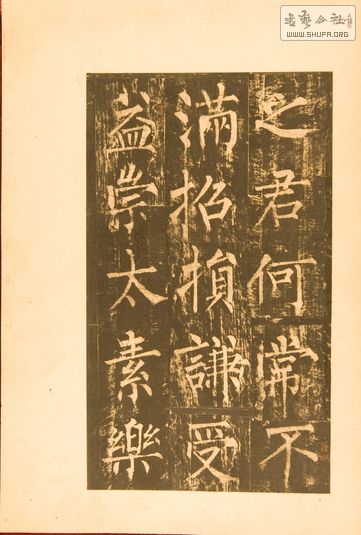 之君何常不
滿招損謙受
益崇太素樂
書藝公社
WWW.SHUFA.ORG